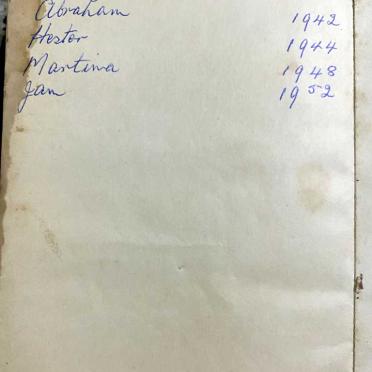 Abraham 1942
Hester 1944
Martina 1948
Jan 1952